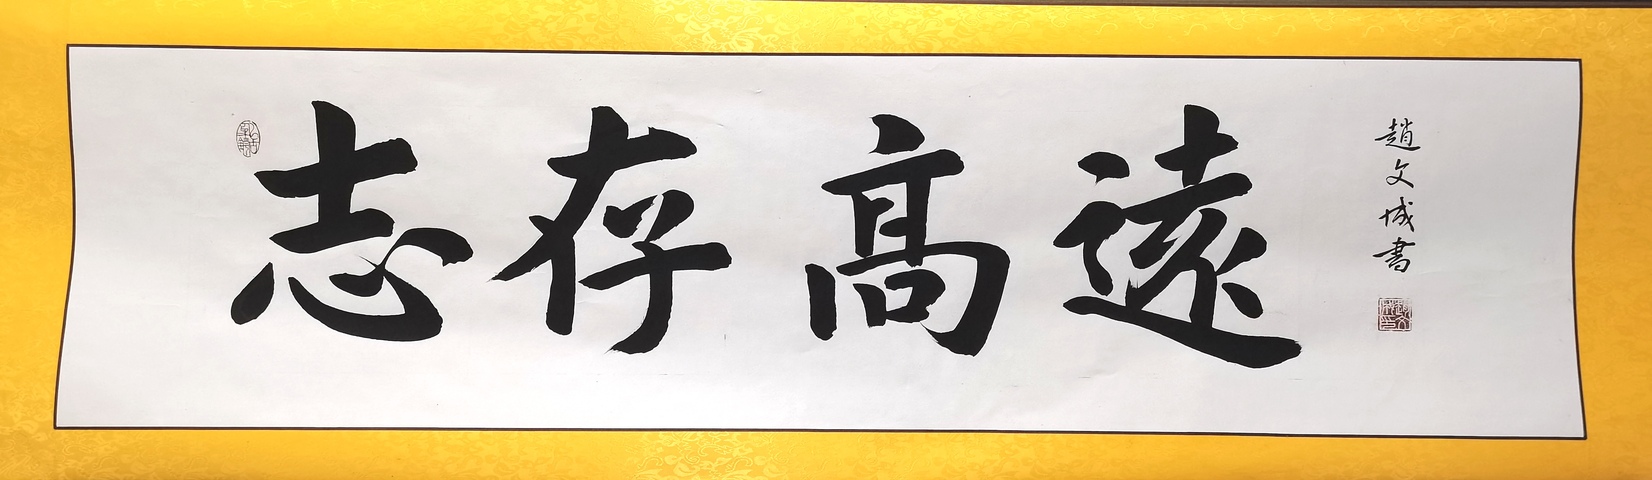 志存高遠
趙文城書